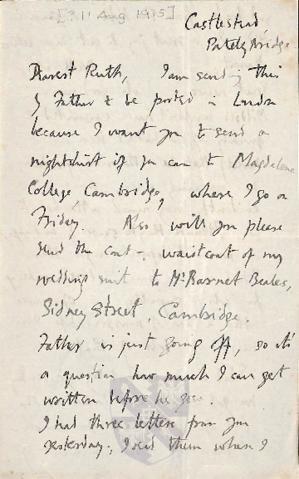 [31 Aug 1915]
Castlestead
Pateley Bridge
Dearest Ruth, I am sending this
by Father to be posted in London
because I want you to send a
nightshirt if you can to Magdalene
College, Cambridge, where I go on
Friday. Also will you please
send the coat & waistcoat of my
wedding suit to Mr Barnet Beales,
Sidney Street, Cambridge.
Father is just going off, so it's
a question how much I can get
written before he goes.
I had three letters from you
yesterday; I read them when I